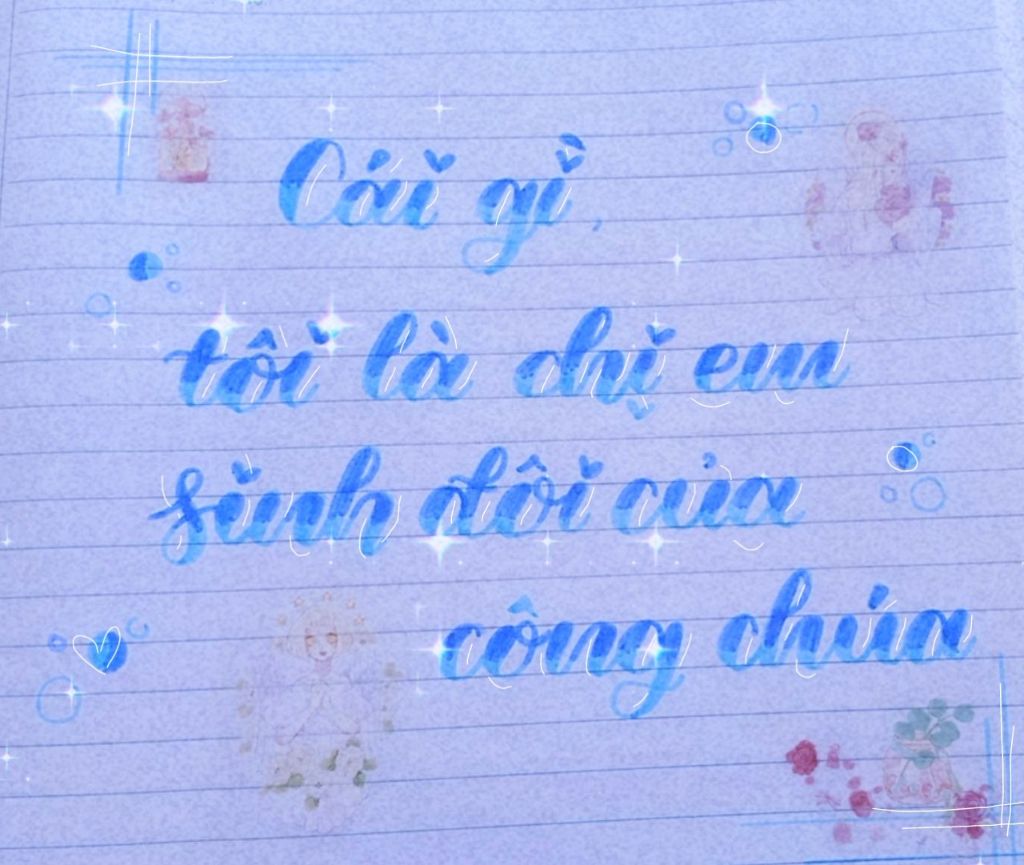 Cái gì,
tôi là chị em
sinh đôi của
công chúa